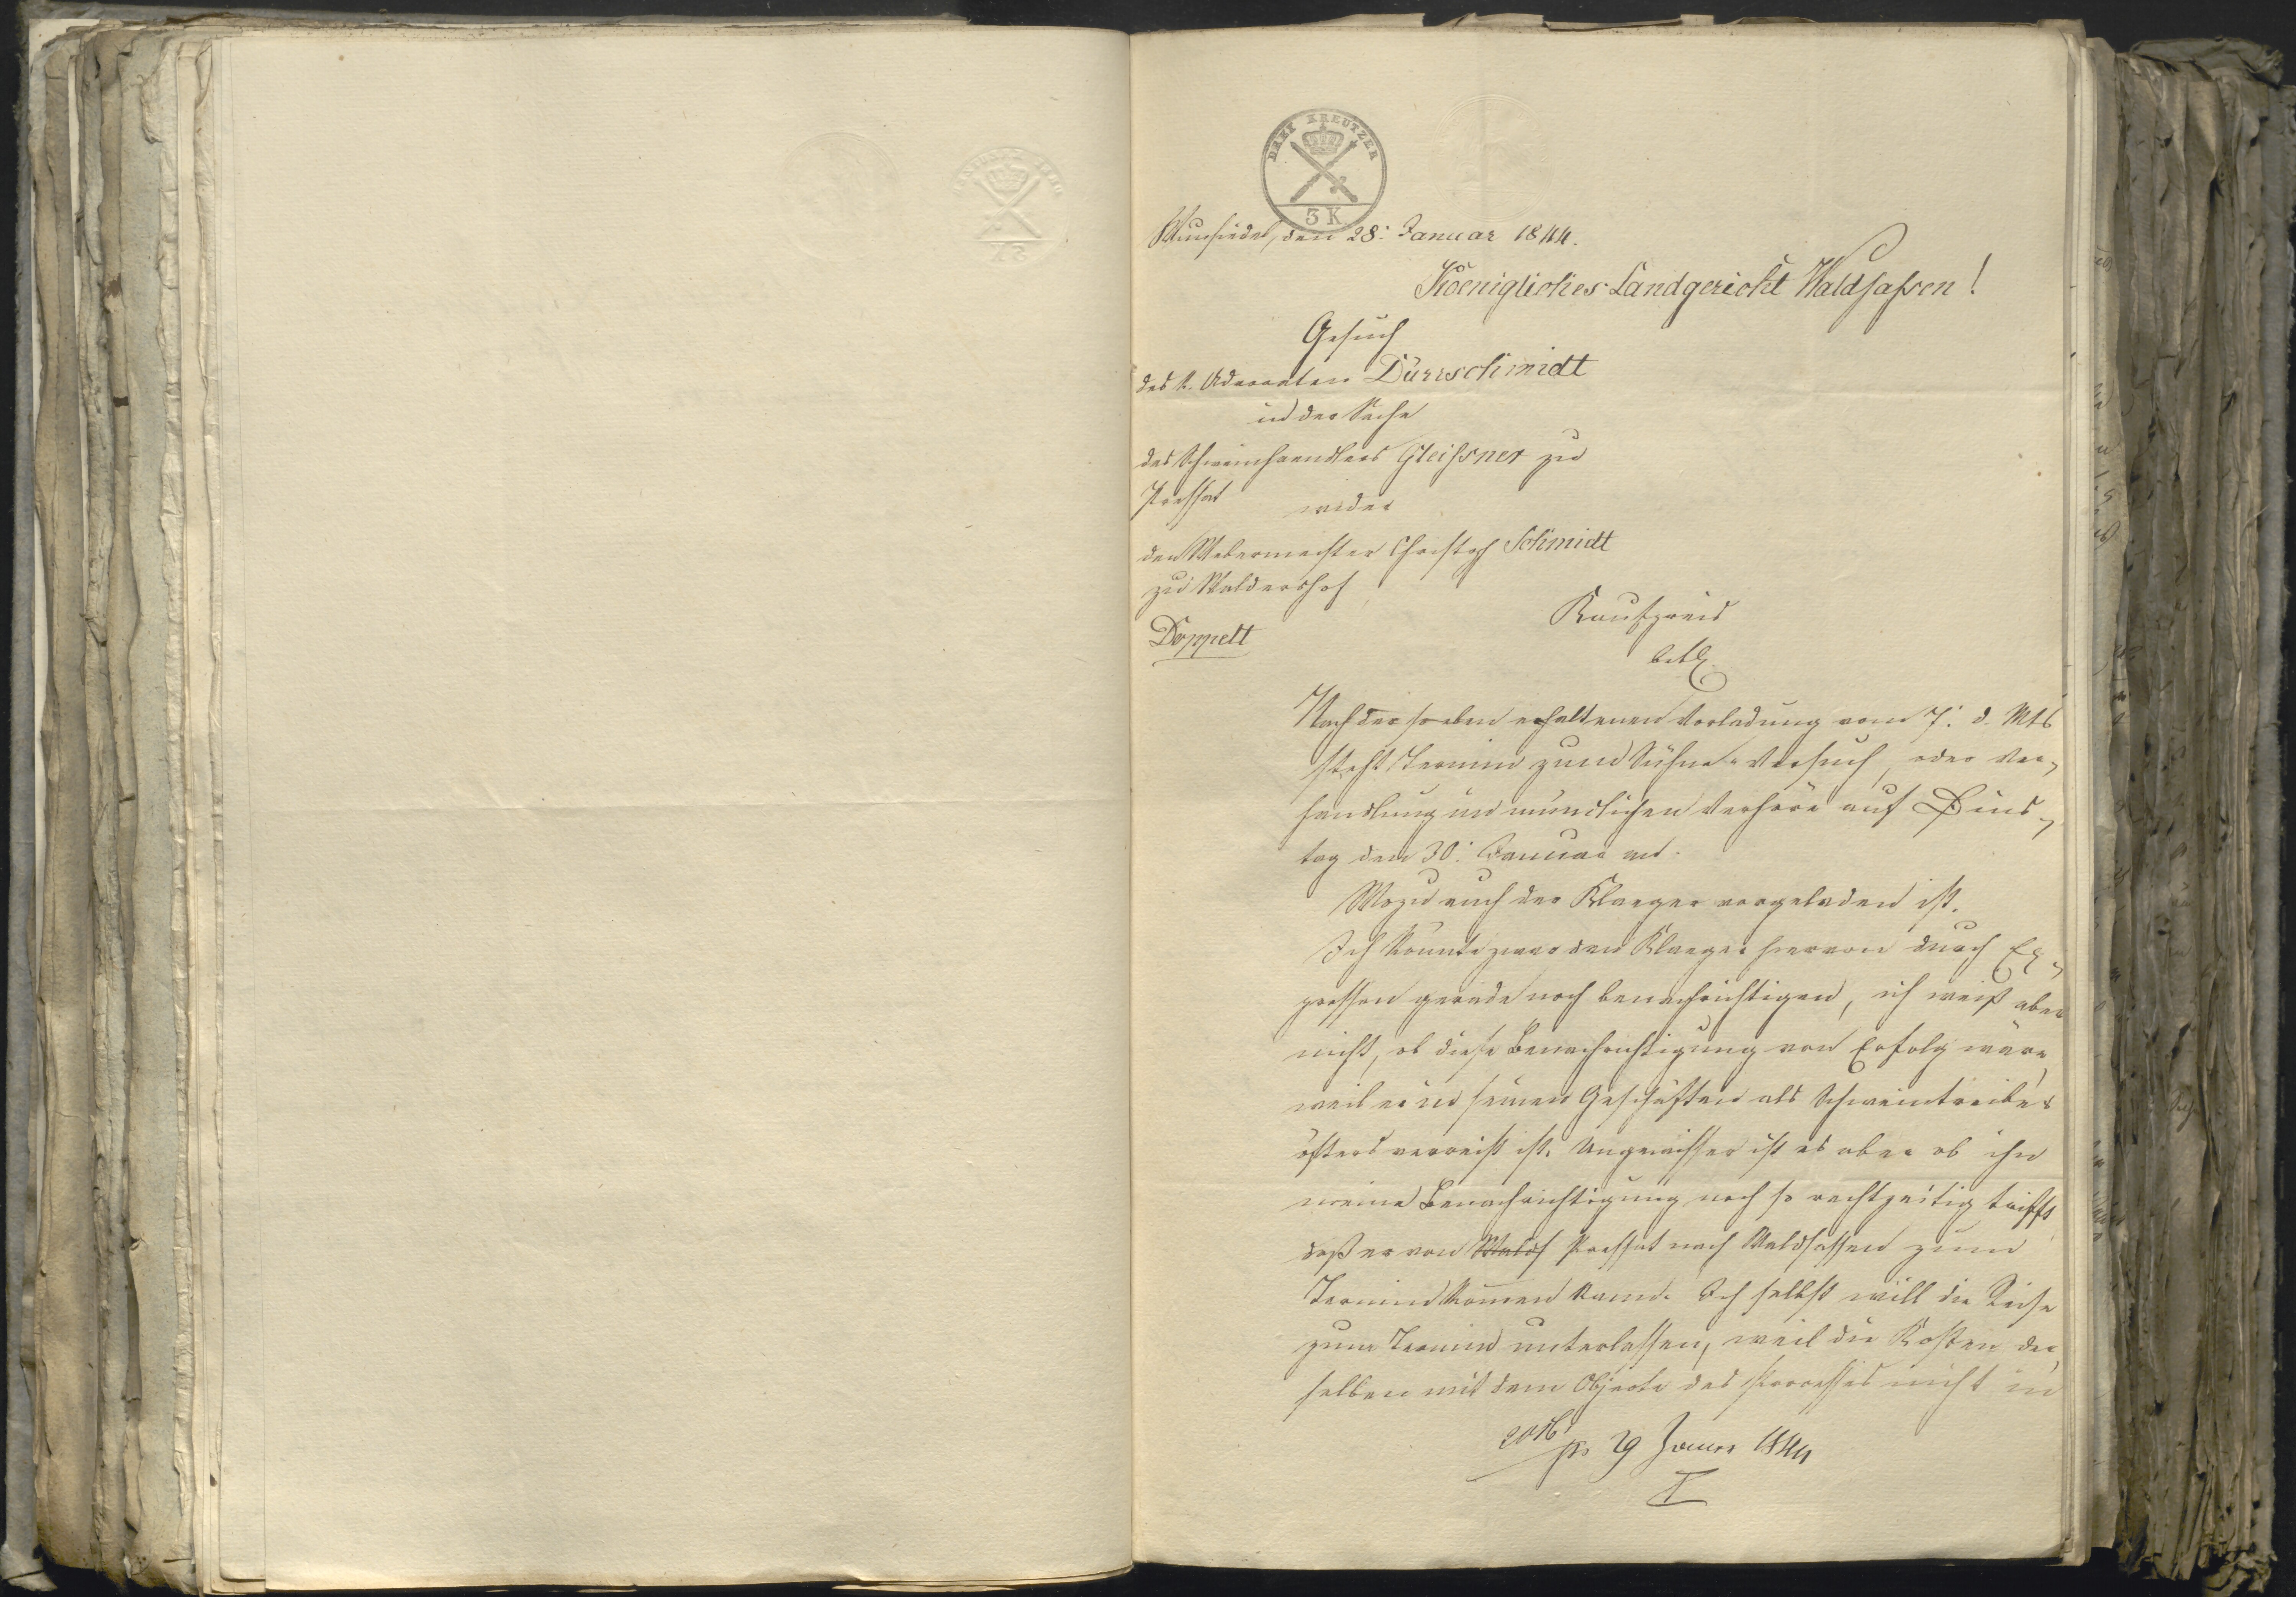 DREY KREUTZER
3 K
Wunsiedel, den 28. Januar 1844.
Koenigliches Landgericht Waldsaßen!
Gesuch
des k. Advocaten Dürrschmidt
in der Sache
des Schweinhaendlers Gleißner zu
Pressat
wider
den Webermeister Christoph Schmidt
zu Waldershof
Doppelt
Kaufpreis
betr.
Nach der so eben erhaltenen Vorladung vom 7. d. Mts
steht Termin zum Sühne-Versuch, oder Ver-
handlung im mündlichen Verhöre auf Dins-
tag den 30. Januar an.
Wozu auch der Klaeger vorgeladen ist.
Ich könnte zwar den Klaeger hievon durch Ex-
pressen gerade noch benachrichtigen, ich weiß aber
nicht, ob diese Benachrichtigung von Erfolg wäre,
weil er in seinen Geschäften als Schweintreiber
öfters verreist ist. Ungewisser ist es aber ob ihn
meine Benachrichtigung noch so rechtzeitig trifft,
daß er von Walds Pressat nach Waldsassen zum
Termin kommen kann. Ich selbst will die Reise
zum Termin unterlassen, weil die Kosten der-
selben mit dem Objecte des Processes nicht in
ps 29 Januar 1844
I